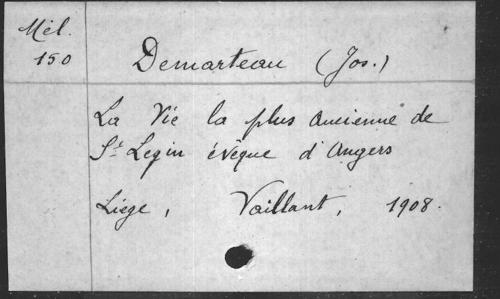 Mél.
150
Demarteau (Jos.)
La Vie la plus ancienne de
St. Lezin évêque d'Angers
Liège, Vaillant, 1908.